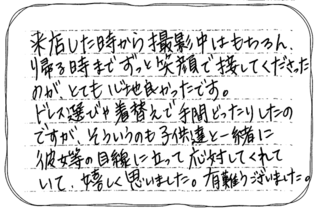 来店した時から撮影中はもちろん、
帰る時までずっと笑顔で接してくださった
のが、とても心地良かったです。
ドレス選びや着替えで手間どったりしたの
ですが、そういうのも子供達と一緒に
彼女等の目線に立って応対してくれて
いて、嬉しく思いました。有難うございました。